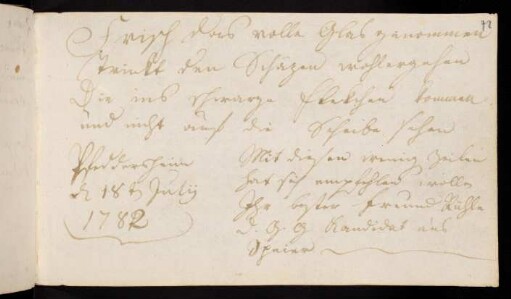 72
Frisch das volle Glas genommen
Trinkt den Schüzen wohlergehen
Die ins schwarze Flekchen kommen
und nicht auf die Scheibe sehen
Pfeddersheim
d 18t Julÿ
1782
Mit diesen wenig Zeilen
hat sich empfehlen wollen
Ihr bester Freund Kuhla
d. G. G Kandidat aus
Speier